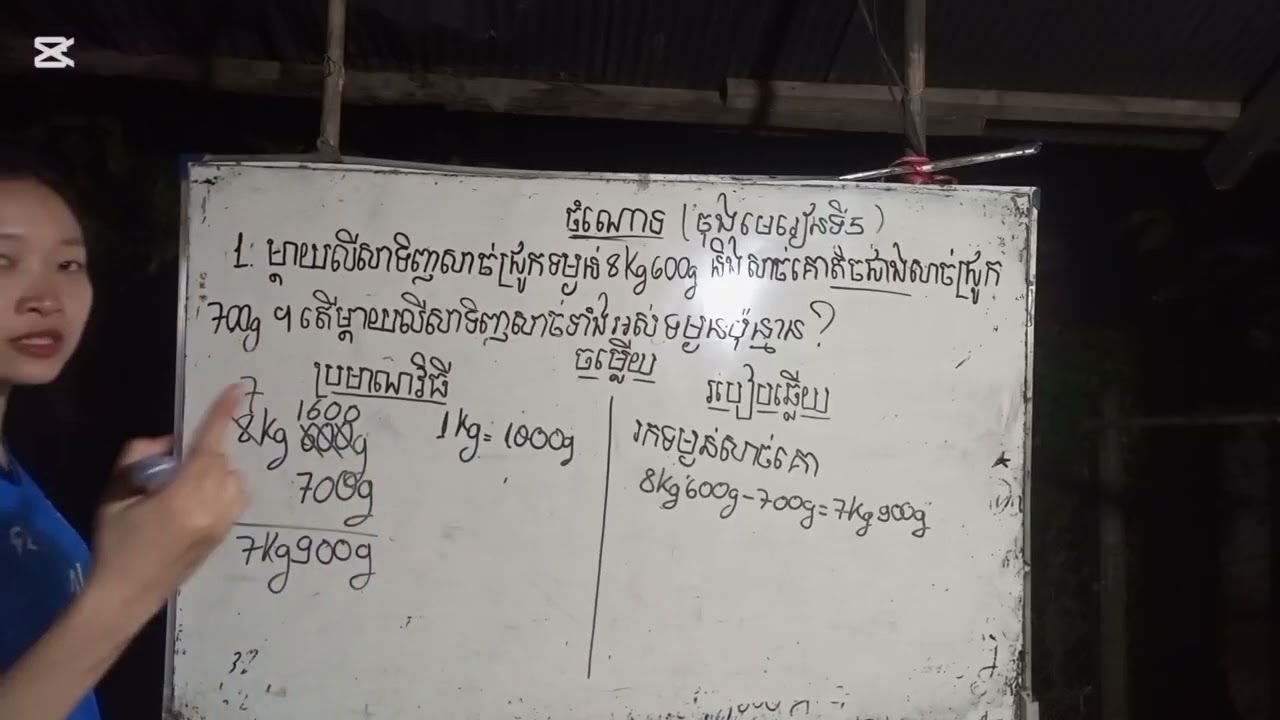 ចំណោទ (ចុងមេរៀនទី5)
1. ម្តាយលីសាទិញសាច់ជ្រូកទម្ងន់ 8kg600g និងសាច់គោតិចជាងសាច់ជ្រូក
700g ។ តើម្តាយលីសាទិញសាច់ទាំងអស់ទម្ងន់ប៉ុន្មាន?
ចម្លើយ
ប្រមាណវិធី
7 1600
8kg 600g
700g
7kg900g
1kg = 1000g
របៀបឆ្លើយ
រកទម្ងន់សាច់គោ
8kg600g-700g=7kg900g